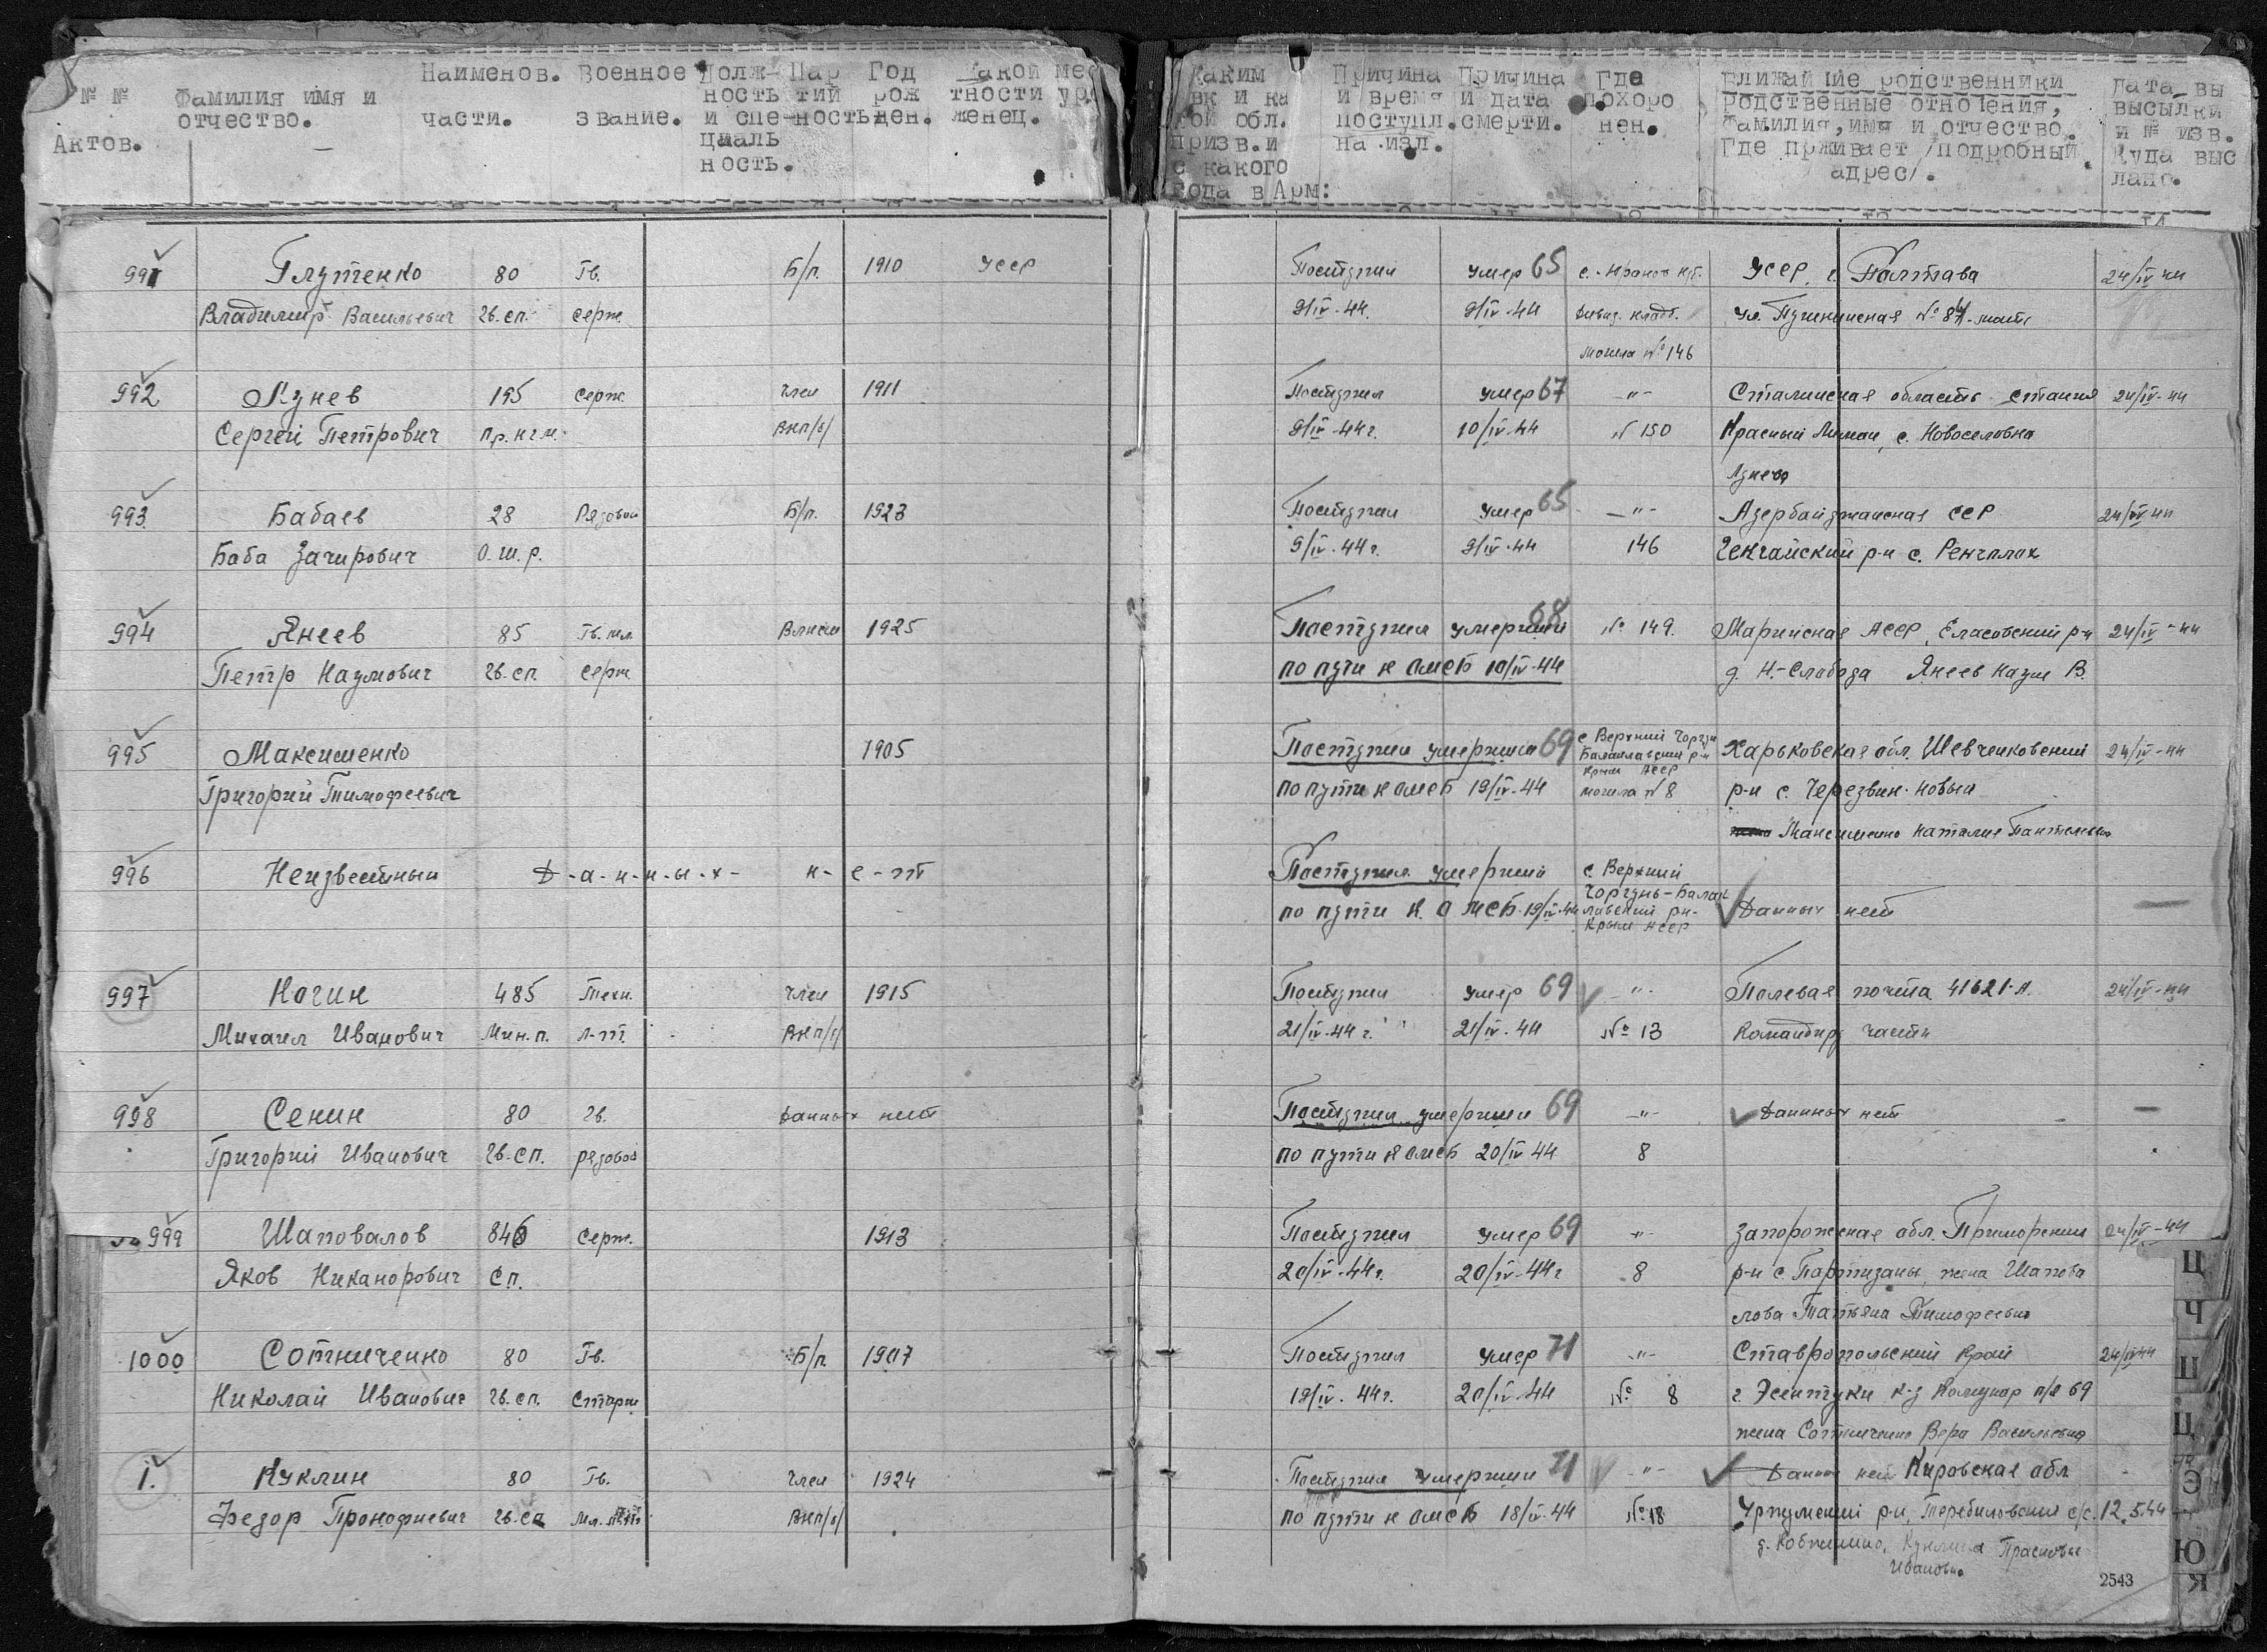 № № Фамилия имя и отчество. Наименов. части. Военное звание. Долж-ность и спе-циаль ность. Пар тий ность Год рож ден. Какой мес тности уро женец.
Актов.
Каким вк и ка кой обл. призв. и с какого года в Арм: Причина и время поступл. на изл. Причина и дата смерти. Где похоро нен. Ближайшие родственники Родственные отношения, Фамилия, имя и отчество. Где прживает /подробный адрес/. Дата вы высылки и № изв. Куда выс лано.
991 Глутенко 80 Гв. Б/п. 1910 УССР Поступил умер 65 УССР. г. Полтава 24/IV 44
Владимир Васильевич гв. сп. серж. 9/IV-44. 9/IV-44 дивиз. кладб. ул. Пушкинская № 84
могила № 146
992 Лунев 195 серж. член 1911 Поступил умер 67 -"- Сталинская область станция 24/IV-44
Сергей Петрович ВКП/б/ 9/IV-44г. 10/IV-44 № 150 Красный Лиман, с. Новоселовка
Лунева
993 Бабаев 28 Рядовой Б/п. 1923 Поступил умер 65 -"- Азербайджанская ССР 24/IV 44
Баба О.Ш.Р. 9/IV-44г. 9/IV-44 146 р-н с.
994 Янеев 85 Гв. мл. 1925 Поступил умерший 68 № 149. Марийская АССР, Еласовский р-н 24/IV-44
Петр Наумович гв. сп. серж по пути к ОМСБ 10/IV-44 д. Н.-Слобода Янеев Наум В.
995 Максименко 1905 Поступил умерший 69 с Верхний Чоргунь Балаклавский р-н Крым АССР могила № 8 Харьковская обл. Шевченковский 24/IV-44
Григорий Тимофеевич по пути к ОМСБ 19/IV-44 р-н с.
Максименко Наталия
996 Неизвестный Д-а-н-н-ы-х- н-е-т Поступил умерший с. Верхний Чоргунь-Балаклавский рн- Крым АССР
по пути к ОМСБ. 19/IV-44 Данных нет —
997 Ногин 485 Техн. член 1915 Поступил умер 69 -"- Полевая почта 41621-А. 24/IV-44
Михаил Иванович Мин. п. л-т. ВКП/б/ 21/IV-44 г. 21/IV-44 № 13 Командиру части
998 Сенин 80 гв. Данных нет Поступил умерший 69 -"- Данных нет —
Григорий Иванович гв. сп. рядовой по пути к ОМСБ 20/IV 44 8
999 Шаповалов 846 серж. 1913 Поступил умер 69 -"- Запорожская обл. Приморский 24/IV-44
Яков Никанорович сп. 20/IV-44г. 20/IV-44г 8 р-н с Партизаны, жена Шапова
лова Татьяна Тимофеевна
1000 Сотниченко 80 Гв. Б/п 1907 Поступил умер 71 -"- Ставропольский край 24/IV 44
Николай Иванович гв. сп. Старш 19/IV-44г. 20/IV-44 № 8 г. Эсентуки к-з Коммунар п/я 69
жена Сотниченко Вера Васильевна
1. Куклин 80 Гв. член 1924 Поступил умерший 71 -"- Данных нет Кировская обл
Федор Прокофиевич гв. сп Мл. ВКП/б/ по пути к ОМСБ 18/IV-44 № 18 Уржумский р-н, Теребиловский с/с. 12.5.44
Куклина Прасковья
Ивановна
Ц
Ч
Ш
Щ
Э
Ю
Я
2543